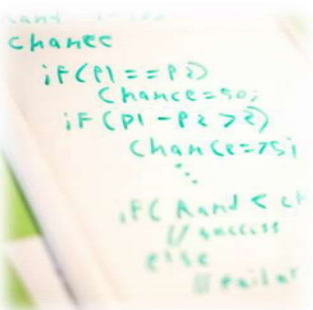 chance
if(P1==P2)
Chance=50;
if(P1-P2>2)
Chance=75;
if( Rand < ch
// success
else
// failur